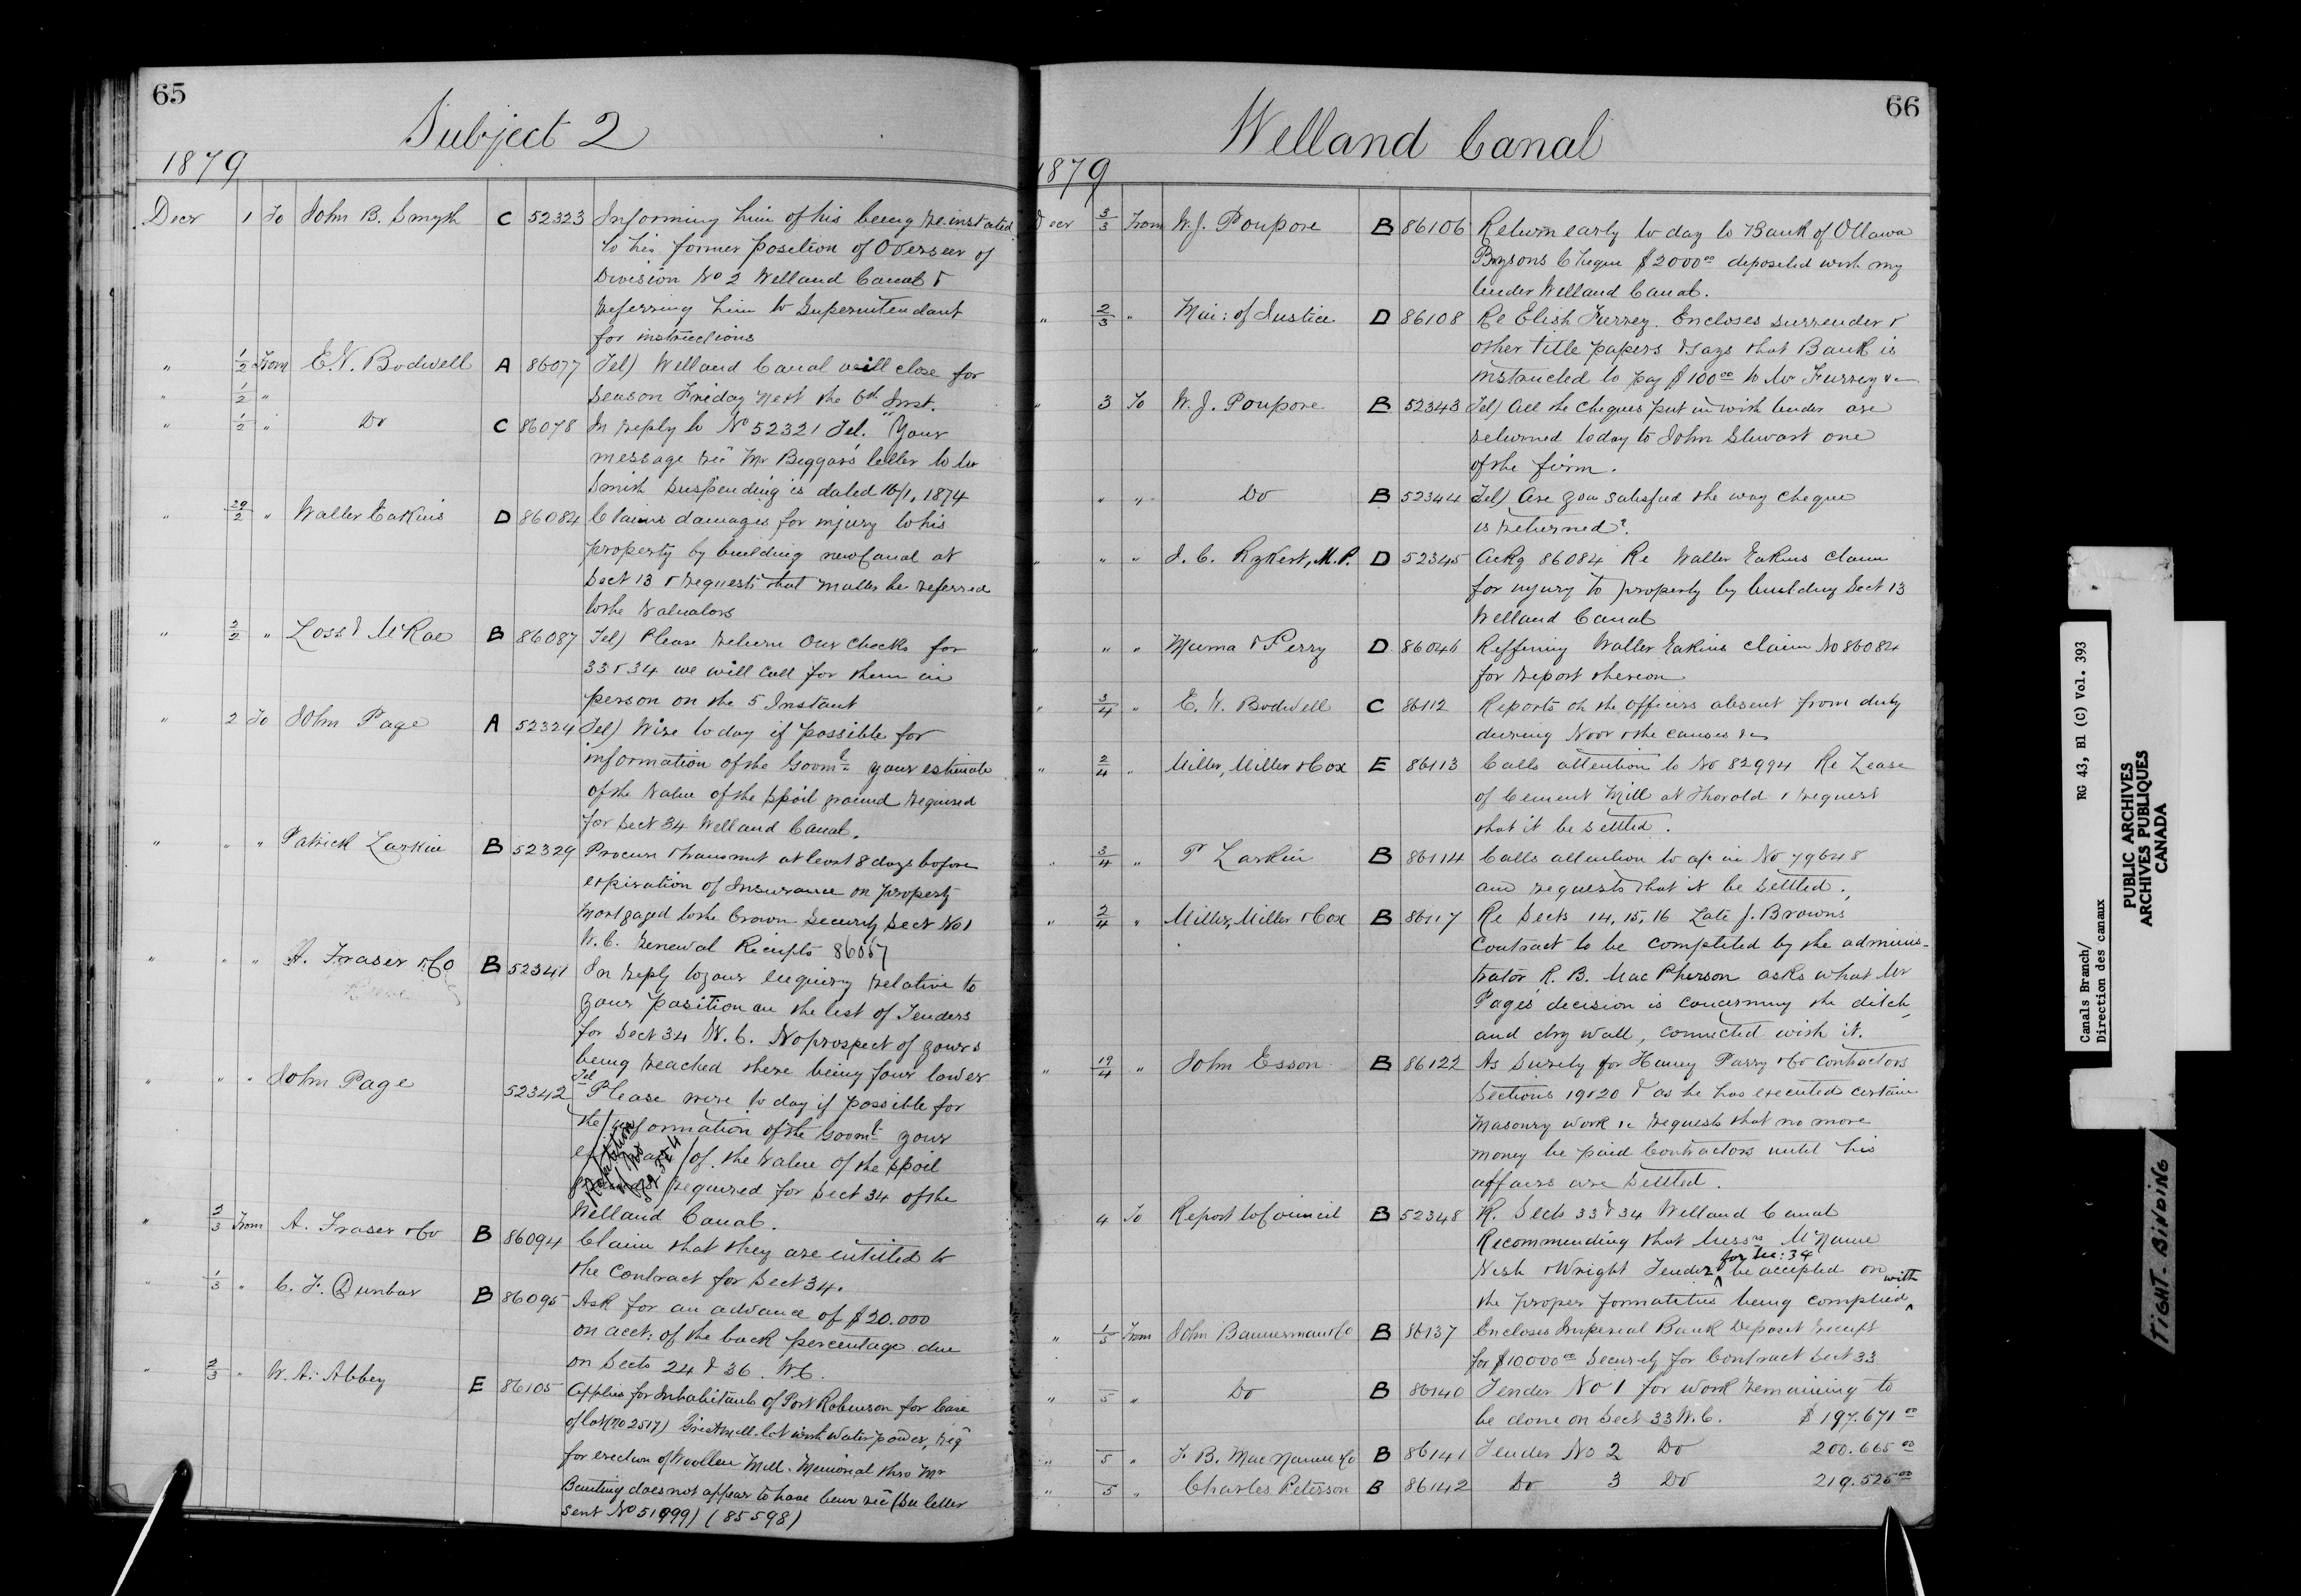 65
Subject 2
1879
Decr 1 To John B. Smyth C 52323 Informing him of his being reinstated
to his former position of Overseer of
Division No 2 Welland Canal &
referring him to Superintendant
for instructions
" 1/2 From E.V. Bodwell A 86077 Tel) Welland Canal will close for
" 1/2 " season Friday next the 6th Inst.
" 1/2 " Do C 86078 In reply to No 52321 Tel. "Your
message recd Mr Beggars letter to Mr
Smith suspending is dated 16/1, 1874
" 29/2 " Walter Eakins D 86084 Claims damages for injury to his
property by building new Canal at
Sect 13 & requests that matter be referred
to the Valuators
" 2/2 " Loss & McRae B 86087 Tel) Please return our checks for
33 & 34 we will call for them in
person on the 5 Instant
" 2 To John Page A 52324 Tel) Wire to day if possible for
information of the Goomt your estimate
of the value of the spoil ground required
for Sect 34 Welland Canal.
" " " Patrick Larkin B 52329 Procure & transmit at least 8 days before
expiration of Insurance on property
Mortgaged to the Crown Security Sect No 1
W.C. renewal Receipts 86057
" " " A. Fraser & Co B 52341 In reply to your enquiry relative to
your position on the list of Tenders
for Sect 34 W.C. No prospect of yours
being reached there being four lower
" " " John Page 52342 Tel Please wire to day if possible for
the information of the Goomt your
estimate of the value of the spoil
ground required for Sect 34 of the
Welland Canal.
Repetition
of No
52324
" 2/3 From A. Fraser & Co B 86094 Claim that they are entitled to
the contract for Sect 34.
" 1/3 " C. F. Dunbar B 86095 Ask for an advance of $20.000
on acct. of the back percentage due
on Sects 24 & 36. W.C.
" 2/3 " W. A. Abbey E 86105 Applies for Inhabitants of Port Robinson for lease
of lot (no 2517) Grist mill lot with water power, reqd
for erection of Woollen Mill. Memorial thro Mr
Bunting does not appear to have been recd (See letter
sent No 51999) (85598)
66
Welland Canal
1879
Decr 3/3 From W. J. Poupore B 86106 Return early to day to Bank of Ottawa
Brysons Cheque $2000.00 deposited with my
tender Welland Canal.
" 2/3 " Min: of Justice D 86108 Re Elish Furrey. Encloses surrender &
other title papers & says that Bank is
instructed to pay $100.00 to Mr Furrey &c
" 3 To W. J. Poupore B 52343 Tel) All the cheques put in with tender are
returned today to John Stewart one
of the firm.
" " " Do B 52344 Tel) Are you satisfied the way cheque
is returned?
" " " J. C. Rykert, M.P. D 52345 Ackg 86084 Re Walter Eakins claim
for injury to property by building Sect 13
Welland Canal
" " " Muma & Perry D 86046 Reffering Walter Eakins claim No 86084
for report thereon
" 3/4 " E. V. Bodwell C 86112 Reports on the officers absent from duty
during Novr & the causes &c
" 2/4 " Miller, Miller & Cox E 86113 Calls attention to No 82994 Re Lease
of Cement Mill at Thorold & request
that it be settled.
" 3/4 " P Larkin B 86114 Calls attention to a/c in No 79648
and requests that it be settled.
" 2/4 " Miller, Miller & Cox B 86117 Re Sects 14, 15, 16 Late J. Browns
contract to be completed by the adminis-
trator R. B. MacPherson asks what Mr
Page's decision is concerning the ditch
and dry wall, connected with it.
" 19/4 " John Esson B 86122 As Surety for Haney Parry & Co contractors
Sections 19 & 20 & as he has executed certain
Masonry work &c requests that no more
money be paid Contractors until his
affairs are settled.
4 To Report to Council B 52348 R. Sects 33 & 34 Welland Canal
Recommending that Messrs McName
Nish & Wright Tender for Sec: 34 be accepted on
the proper formatities being complied with
" 1/5 From John Bannerman & Co B 86137 Encloses Imperial Bank Deposit receipt
for $10000.00 Security for Contract Sect 33
" 5 " Do B 86140 Tender No 1 for work remaining to
be done on Sect 33 W.C. $197.671.00
" 5 " F. B. MacNamee & Co B 86141 Tender No 2 Do 200.665.00
" 5 " Charles Peterson B 86142 Do 3 Do 219.525.00
Canals Branch/ RG 43, Bl (C) Vol. 393
Direction des canaux
PUBLIC ARCHIVES
ARCHIVES PUBLIQUES
CANADA
TIGHT. BINDING